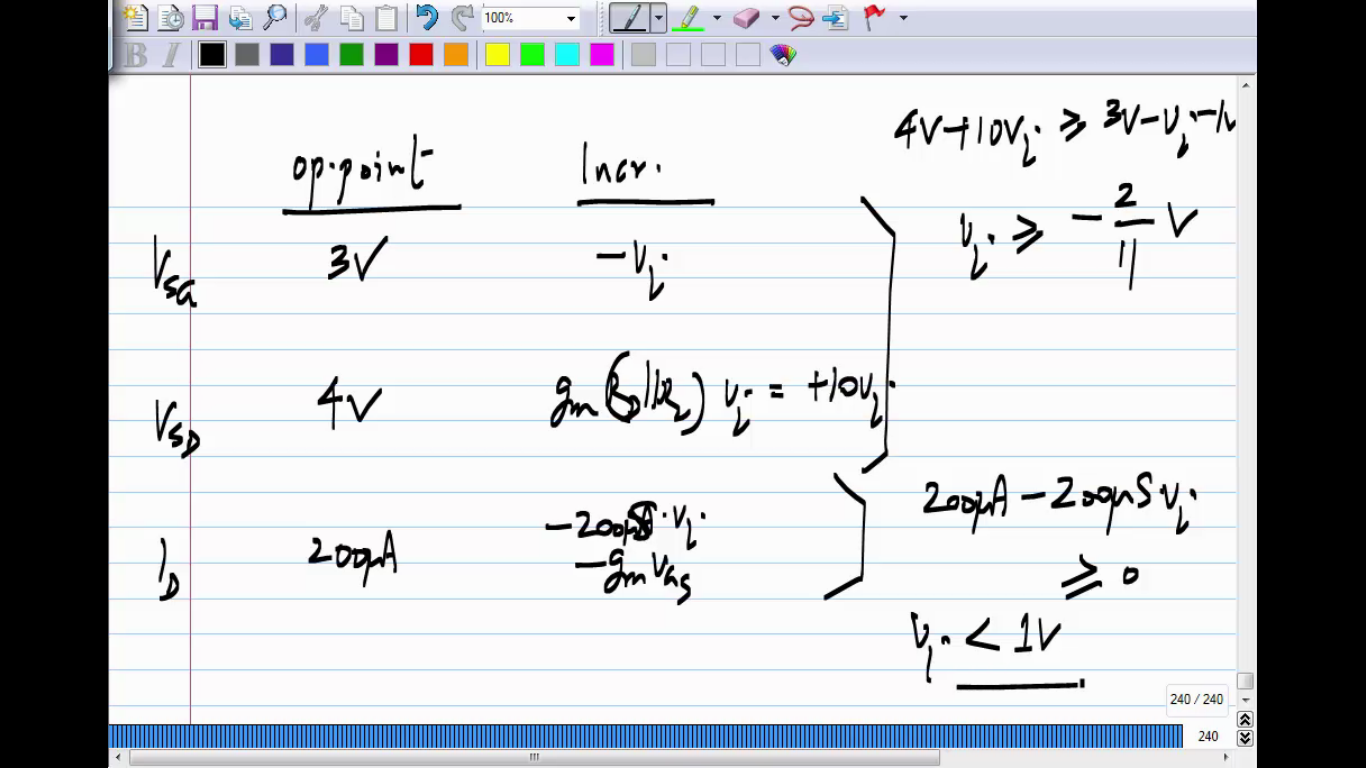 100%
B I
op.point Incr.
V_SG 3V -v_i
V_SD 4V g_m (R_D||R_L) v_i = +10v_i
I_D 200μA -200μS·v_i
-g_m v_gs
4V+10v_i ≥ 3V-v_i-1V
v_i ≥ -2/11 V
200μA - 200μS·v_i
≥ 0
v_i < 1V
240 / 240
240